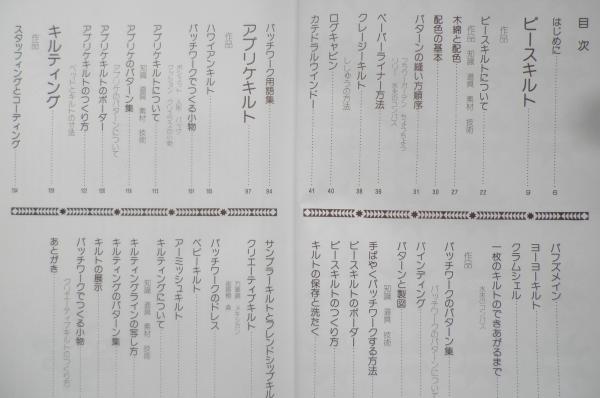 目次
はじめに 6
ピースキルト 9
作品
ピースキルトについて 22
作品 知識 道具 技術
木綿と配色 27
配色の基本 30
パターンの縫い方順序 31
フラワーガーデン ちょうちょう
リリー 水夫のコンパス
ペーパーライナー方法 36
クレージーキルト 38
ししゅうの方法
ログキャビン 40
カテドラルウインドー 41
パフズメイン
ヨーヨーキルト
クラムシェル
一枚のキルトのできあがるまで
水夫のコンパス
作品
パッチワークのパターン集
パッチワークのパターンについて
バインディング
パターンと製図
知識 道具 技術
手ばやくパッチワークする方法
ピースキルトのボーダー
ピースキルトのつくり方
キルトの保存と洗たく
パッチワーク用語集 94
アプリケキルト 97
作品
ハワイアンキルト
パッチワークでつくる小物
アプリケキルトについて
知識 道具 素材 技術
アプリケのパターン集
アプリケのパターンについて
アプリケキルトのボーダー
アプリケキルトのつくり方
ベッドとキルトの寸法
キルティング
作品
スタッフィングとコーディング
サンプラーキルトとフレンドシップキル
クリエーティブキルト
パッチワークのドレス
ベビーキルト
アーミッシュキルト
キルティングについて
知識 道具 素材 技術
キルティングラインの写し方
キルティングのパターン集
キルトの展示
パッチワークでつくる小物
クリエーティブキルトのつくり方
あとがき